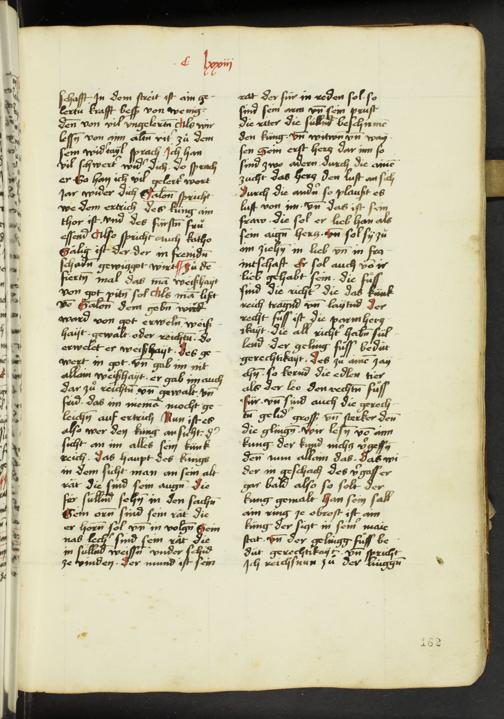 C lxxiii
schafft In dem streit ist ain ge
lertu krafft besß von wenig
den von vil vngelertn Als wir
lessn von aim alm vil zu dem
sem widsayl sprach Ich han
vil schwert wid dich do sprach
er So han ich vil gelert wort
Jar wider dich Salon spricht
we dem ertrich des kung ain
thor ist vnd des fürstn frü
essend Also spricht auch katho
Sälig ist der der in fremdn
schadn gewiczigt wirt Zu de
viertn mal das ma weißhayt
von got pitn sol Als ma list
von Salon dem gebn ward
ward von got erweln weiß
hayt gewalt oder reichtu do
erwelet er weißhayt des ge
wert in got vn gab im nit
allain weißhait er gab im auch
dar zu reichtu vn gewalt vn
sud das im niema mocht ge
leichn auf ertrich Nun ist es
also wer den kung ansicht d
sicht an im alles sein kunk
reich das haupt des kungs
in dem sicht man an sein alt
rät die sind sein augn die
für sülln sehn in den sachn
Sein orn sind sein rät die
er hörn sol vn in volgn Sein
nas lech sind sein rät die
in sülln weissn vnder schid
ze vinden Der mund ist sein
rät der für in reden sol so
sind sein arm vn sein prust
die ritter die sülln beschirme
den kung vn witwn vn way
sen Sein erst herz dar inn so
sind zwo adern durch die aine
zucht das herz den lust an sich
durch die andn so plaust es
lust von im vn das ist sein
fraw die sol er lieb han als
sein aign herz vn sol sy zu
om ziehn in lieb vn in fra
intschaft Er sol auch vo ir
lieb gehabt sein die füss
sind die richt die das kunk
reich tragnd vn laytnd Der
recht füss ist die parmherz
ikayt die all richt habn sül
lend der geling füss bedüt
gerechtikayt des zu aine zay
chn so kernd die edlen tier
als der leo den rechtn füss
für vn sind auch die gerech
tn geld gross vn sterker den
die glingn Wir lesn vo aim
kung der kund nichts vgessn
denn nun allain das das wi
der in geschach des vgas er
gar bald also so solt der
kung gemalt han sein sall
am ring ze obrost ist am
kung der sizt in sein maie
stat vn der geling füss be
düt gerechtikayt vn spricht
Ich reichs nun zu der linggn
162